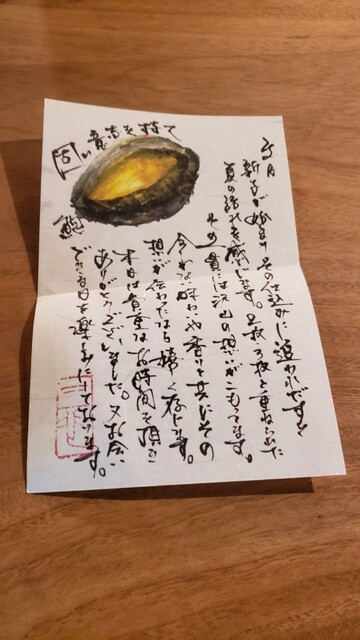 固い意志を持て
鮑
月
新子が始まり その仕込みに追われ
夏の訪れを感じます。2枚3枚と重ねられた
その一貫には沢山の想いがこもってます。
味わいや香りと共にその
想いが伝わったなら嬉しく存じます。
本日は貴重なお時間を頂き
ありがとうございました。又お会い
できる日を楽しみにしております。